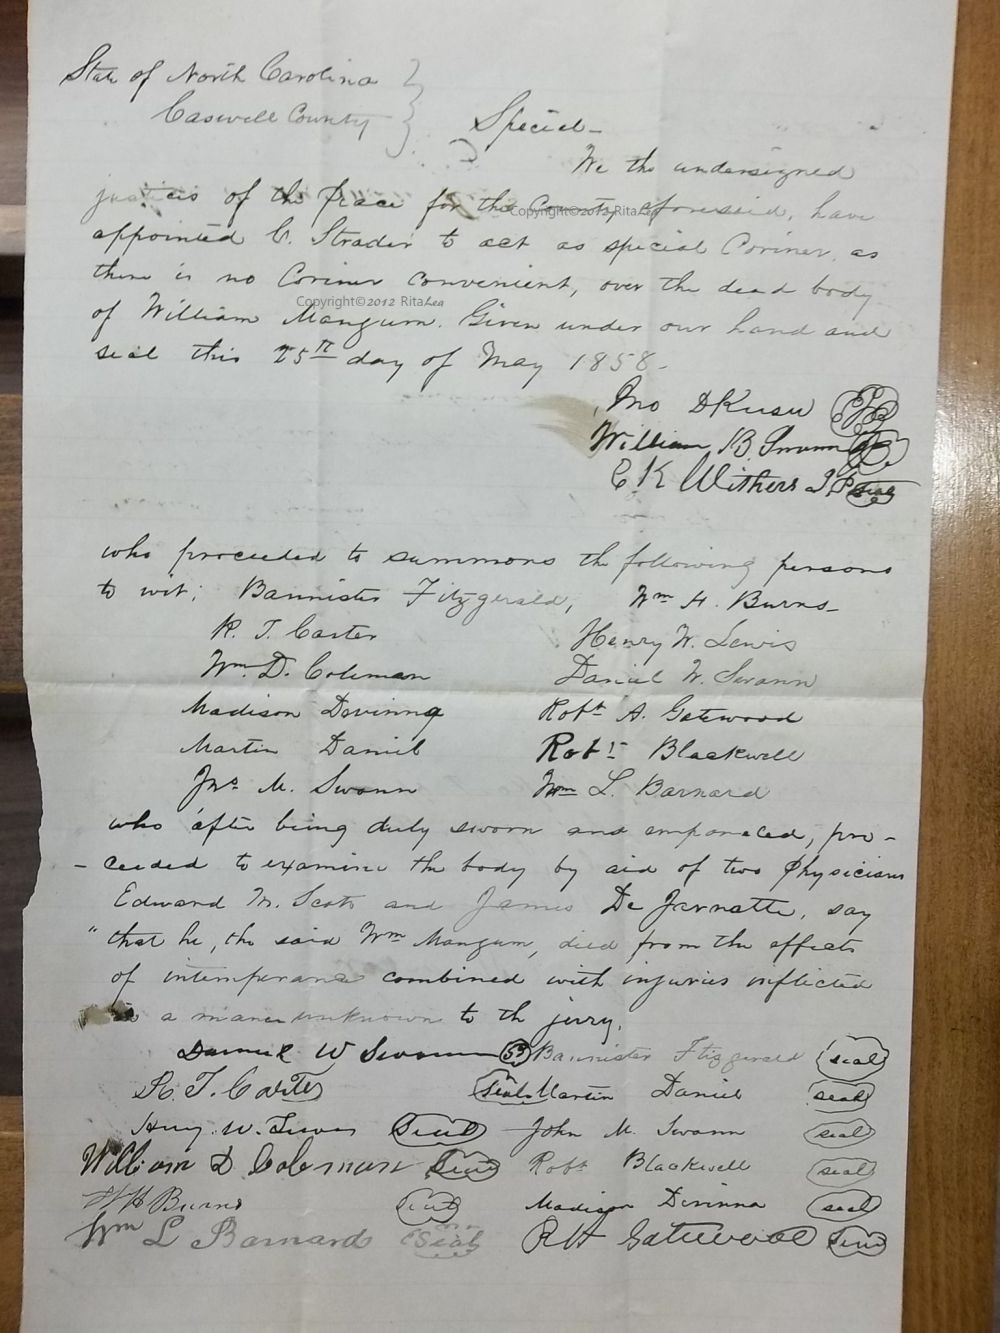 State of North Carolina
Caswell County
Special-
We the undersigned
justices of the Peace for the County aforesaid, have
Copyright©2012 RitaLea
appointed C. Strader to act as special Coriner, as
there is no Coriner convenient, over the dead body
Copyright©2012 RitaLea
of William Mangum. Given under our hand and
seal this 25th day of May 1858-
Jno
William B. Swann
C K Withers J P seal
who proceeded to summons the following persons
to wit; Bannister Fitzgerald, Wm H. Burns-
R. T. Carter Henry W. Lewis
Wm D. Coleman Daniel W. Swann
Madison Devinna Robt A. Gatewood
Martin Daniel Robt Blackwell
Jno M. Swann Wm L. Barnard
who after being duly sworn and empaneled, pro-
-ceeded to examine the body by aid of two Physicians
Edward M. Scott and James De Jarnatte, say
"that he, the said Wm Mangum, died from the effects
of intemperance combined with injuries inflicted
in a maner unknown to th jerry.
Daniel W Swann Bannister Fitzgerald seal
R. T. Carter seal Martin Daniel seal
Henry W. Lewis seal John M. Swann seal
William D Coleman seal Robt Blackwell seal
W H Burns seal Madison Divinna seal
Wm L Barnard seal R H Gatewood seal